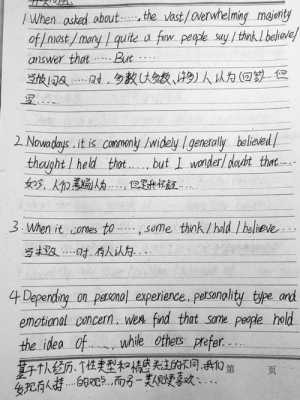 1. When asked about ......, the vast/overwhelming majority
of/most/many/quite a few people say/think/believe/
answer that ...... But ......
当被问及 ......时, 多数(大多数,许多)人认为(回答) 但
是....
2. Nowadays, it is commonly/widely/generally believed/
thought/held that ....., but I wonder/doubt that....
如今, 人们普遍认为....., 但是我怀疑....
3. When it comes to ....., some think/hold/believe....
当提及 .....时 有人认为....
4 Depending on personal experience, personality type and
emotional concern, we find that some people hold
the idea of ....., while others prefer.....
基于个人经历、个性类型和情感关注的不同,我们
发现有人持 ....的观点, 而另一类则更喜欢....
第 页